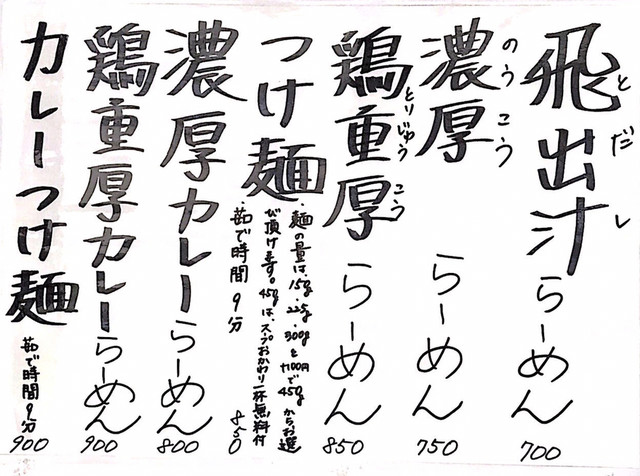 飛出汁らーめん 700
とだし
濃厚らーめん 750
のうこう
鶏重厚らーめん 850
とりじゅうこう
つけ麺 850
・麺の量は、150g、225g、300gと+100円で450gからお選
び頂けます。450gは、スープおかわり一杯無料付
・茹で時間9分
濃厚カレーらーめん 800
鶏重厚カレーらーめん 900
カレーつけ麺 900
茹で時間9分